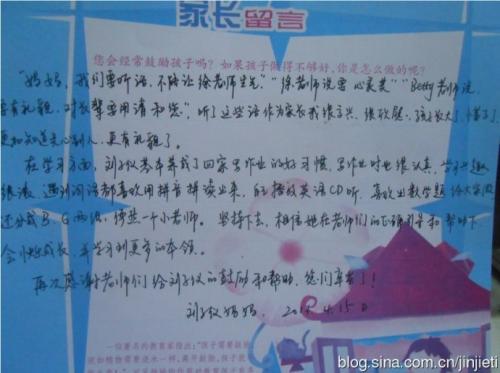 家长留言
您会经常鼓励孩子吗？如果孩子做得不够好，你是怎么做的呢？
"妈妈，我们要听话，不能让徐老师生气""徐老师说要心灵美""Betty老师说
要有礼貌，对长辈要用请和您"，听了这些话作为家长我很高兴、很欣慰，孩子长大了，懂事了，
更加知道关心别人，更有礼貌了。
在学习方面，刘子仪基本养成了回家写作业的好习惯，写作业时也很认真，学习兴趣
很浓，遇到词语都喜欢用拼音拼读出来，能播放英语CD听，喜欢出数学题给大家做
还分成B、G两组，俨然一个小老师。坚持下去，相信她在老师们的正确引导和帮助下
会快乐成长，并学习到更多的本领。
再次感谢老师们给刘子仪的鼓励和帮助，您们辛苦了！
刘子仪妈妈 4.15日
一位著名的教育家指出："孩子需要鼓
就如植物需要浇水一样。离开鼓励，孩子就
blog.sina.com.cn/jinjieti